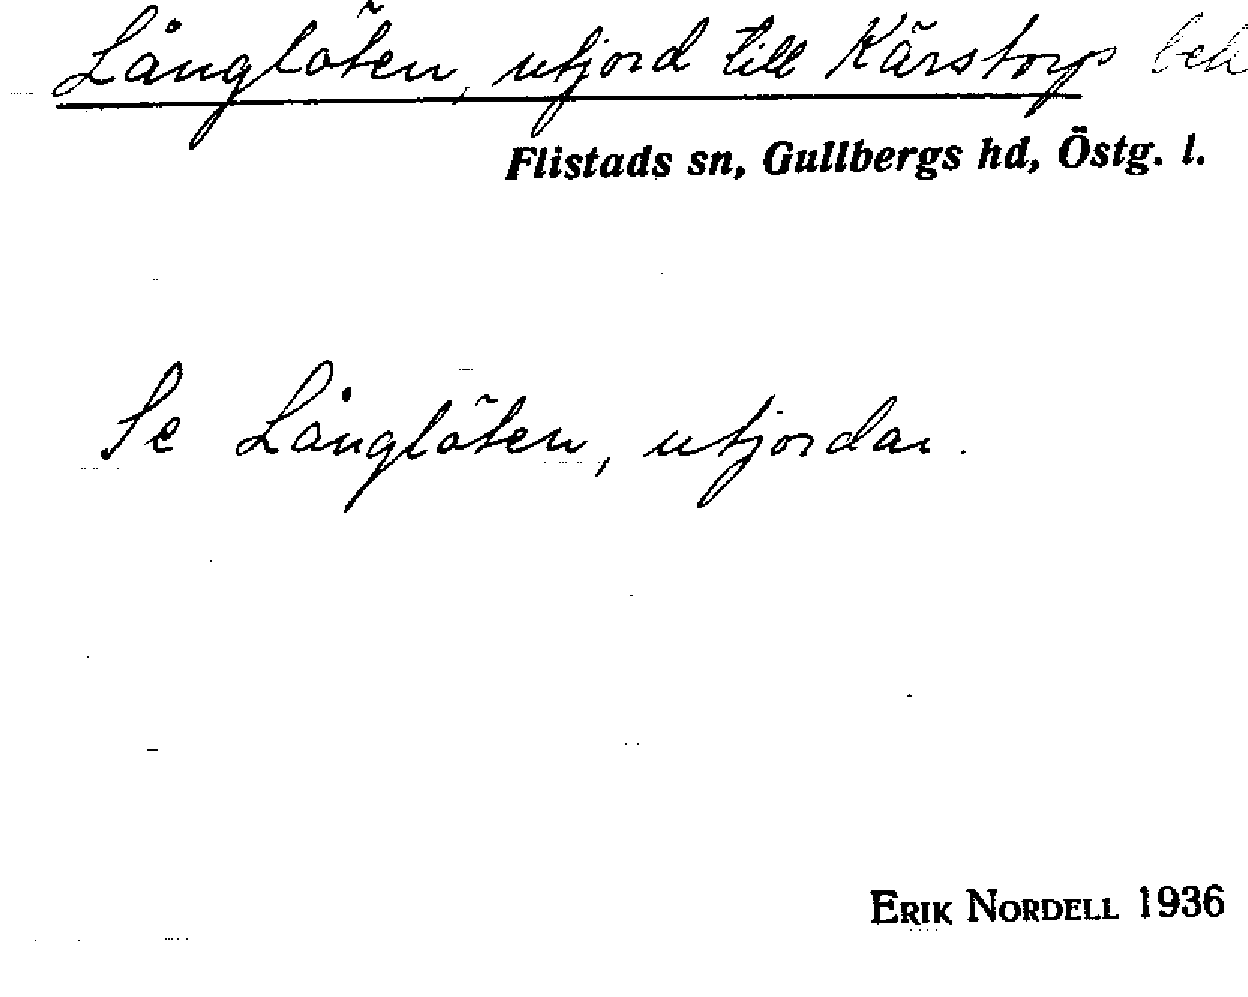 Långlöten, utjord till Kärstorp beh
Flistads sn, Gullbergs hd, Östg. l.
Se Långlöten, utjordar.
ERIK NORDELL 1936